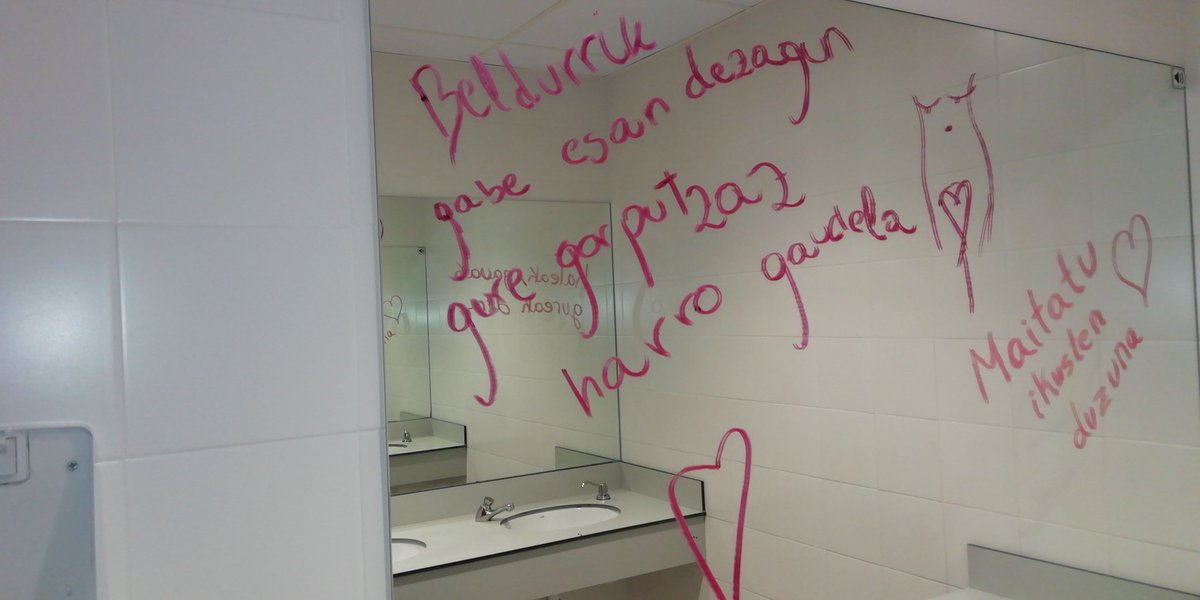 Beldurrik
gabe esan dezagun
gure gorputzaz
harro gaudela
Maitatu
ikusten
duzuna